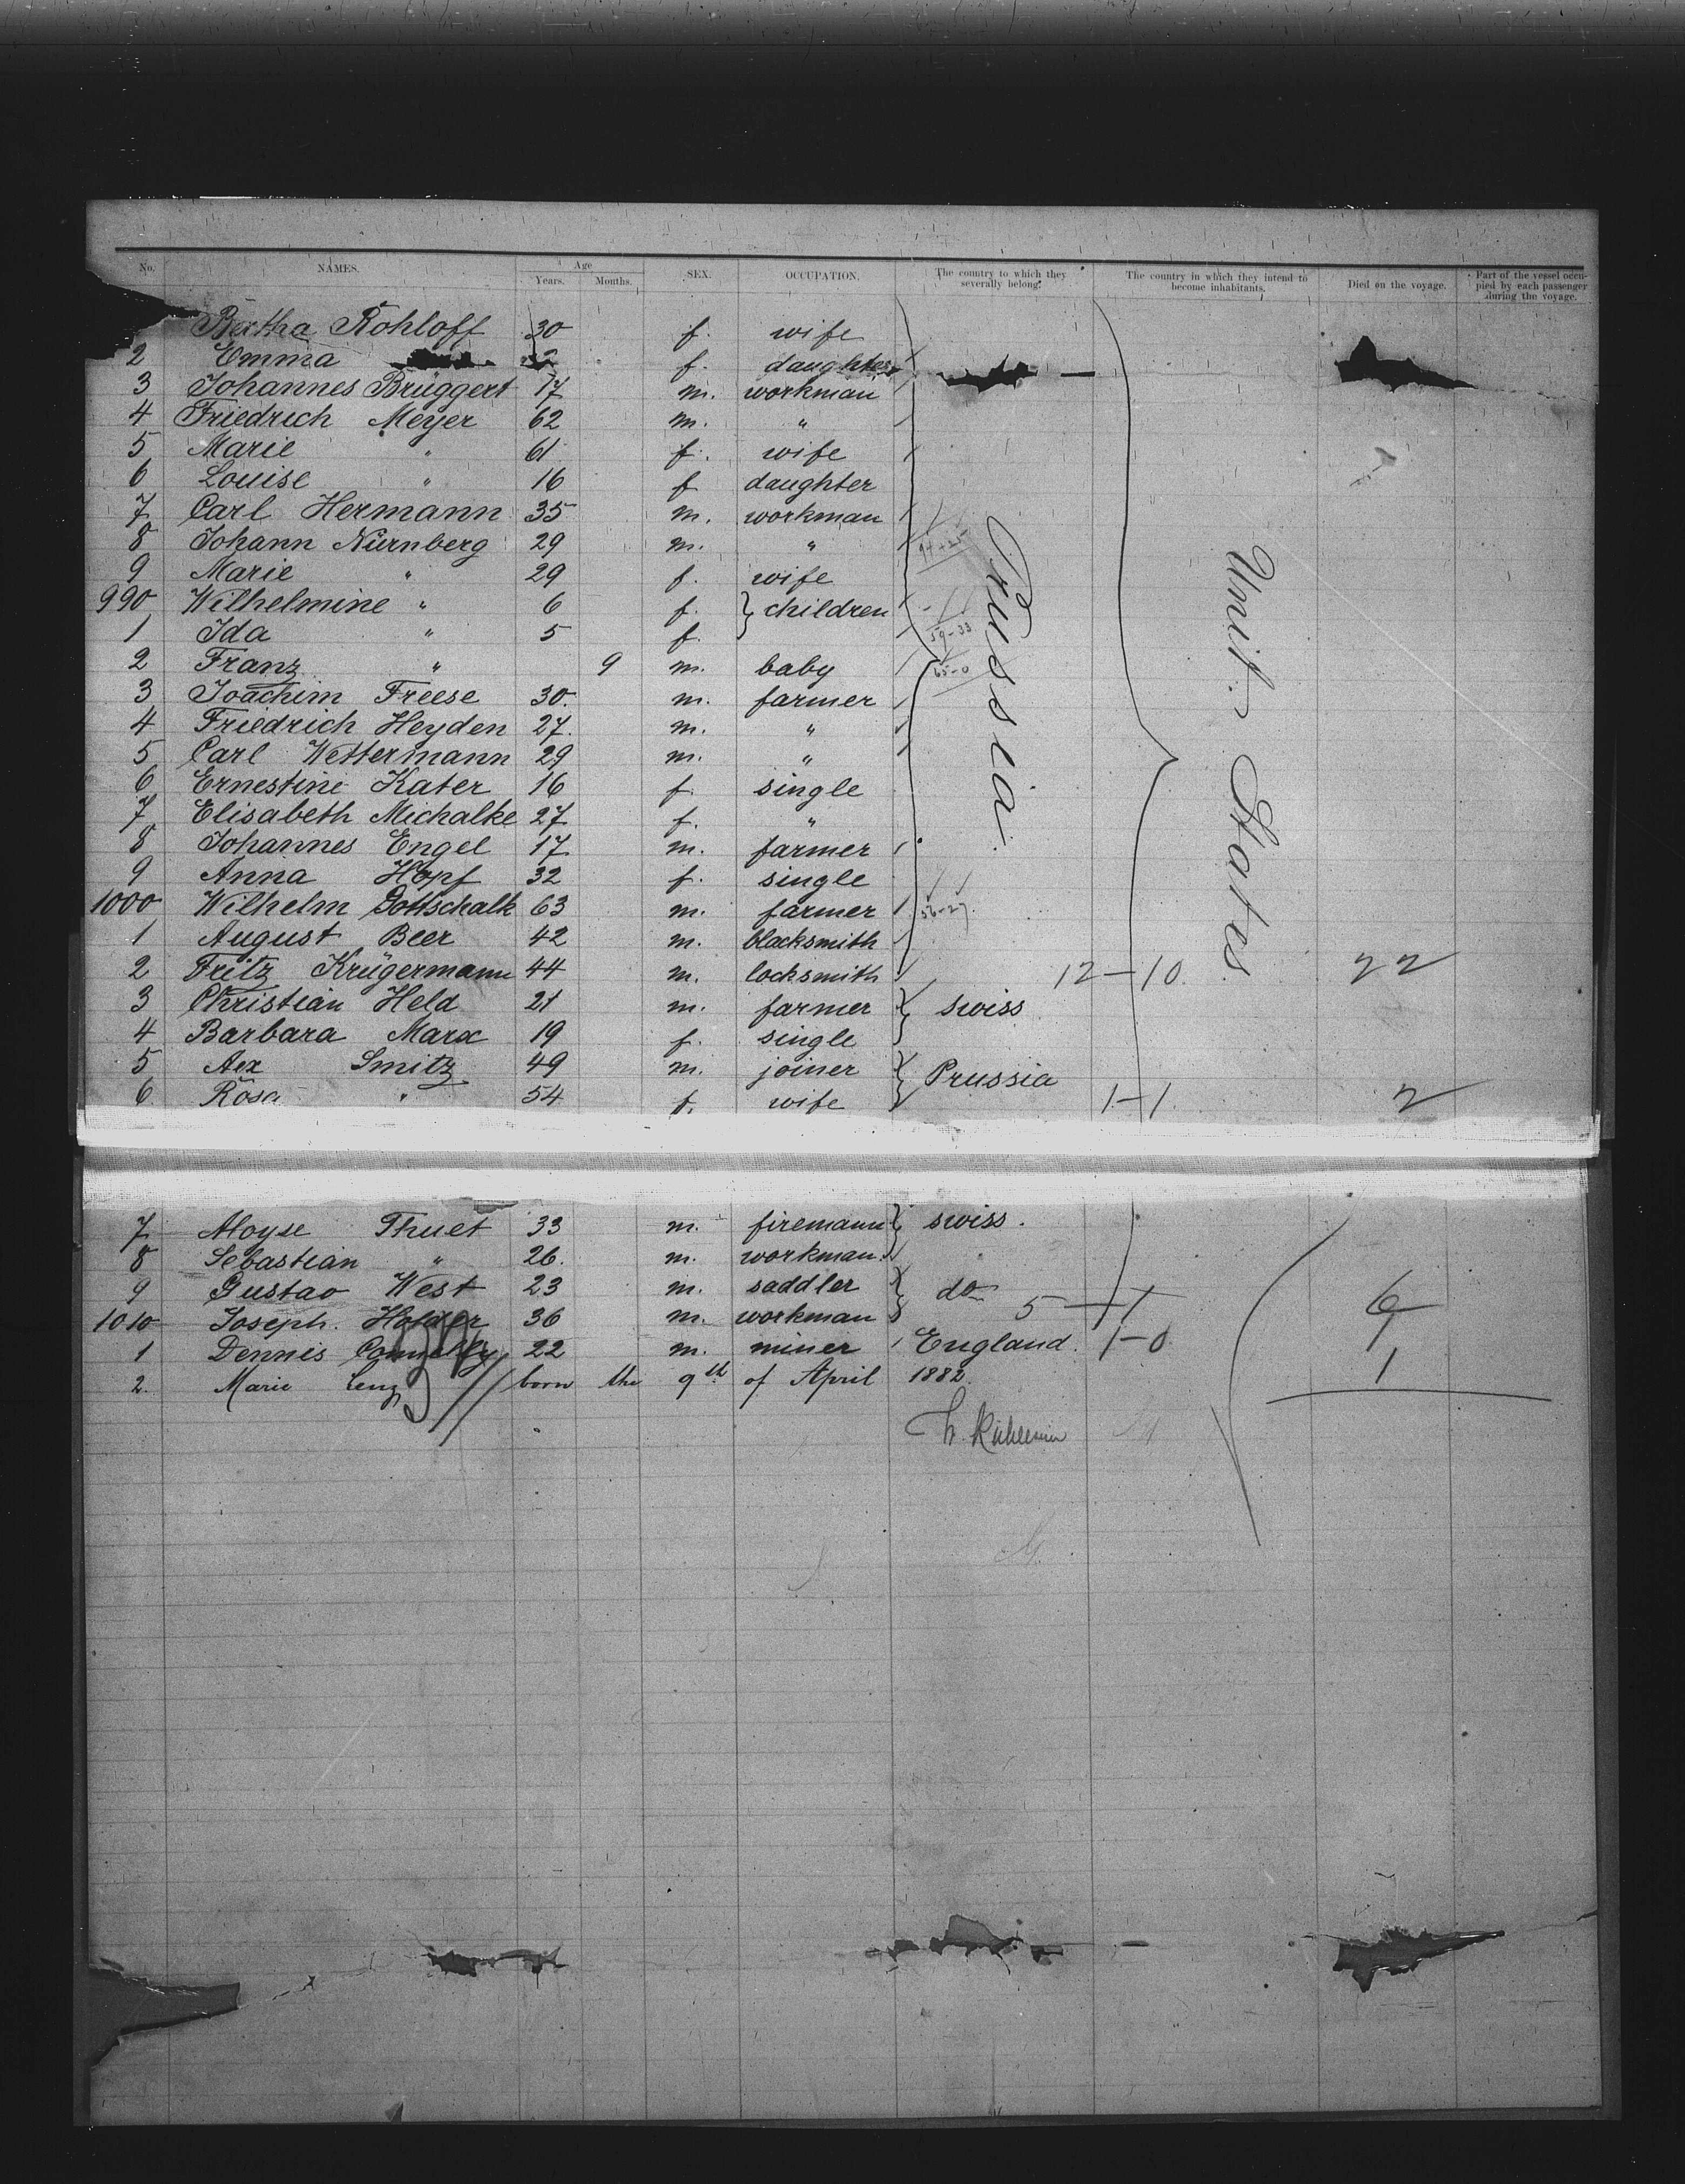 No. NAMES. Age SEX. OCCUPATION. The country to which they severally belong. The country in which they intend to become inhabitants. Died on the voyage. Part of the vessel occupied by each passenger during the voyage.
Years. Months.
Bertha Rohloff 30 f. wife
2 Emma f. daughter
3 Johannes Brüggert 17 m. workman
4 Friedrich Meyer 62 m. "
5 Marie " 61 f. wife
6 Louise " 16 f daughter
7 Carl Hermann 35 m. workman
8 Johann Nürnberg 29 m. "
9 Marie " 29 f. wife
990 Wilhelmine " 6 f. } children
1 Ida " 5 f.
59-33
2 Franz " 9 m. baby
65-0
3 Joachim Freese 30. m. farmer
Prussia.
Unit. States
4 Friedrich Heyden 27. m. "
5 Carl Wettermann 29 m. "
6 Ernestine Kater 16 f. single
7 Elisabeth Michalke 27 f. "
8 Johannes Engel 17 m. farmer
9 Anna Hopf 32 f. single
1000 Wilhelm Gottschalk 63 m. farmer
56-27
1 August Beer 42 m. blacksmith
2 Fritz Krügermann 44 m. locksmith 12-10. 22
3 Christian Held 21 m. farmer } swiss
4 Barbara Marx 19 f. single
5 Aex Smitz 49 m. joiner } Prussia
6 Rosa " 54 f. wife 1-1. 2
7 Aloyse Thuet 33 m. firemann } swiss.
8 Sebastian " 26. m. workman.
9 Gustav West 23 m. saddler } do
5-1 6
1010 Joseph. Holder 36 m. workman
1 Dennis Connelly 22 m. miner England. 1-0 1
2. Marie Lenz born the 9th of April 1882. 1